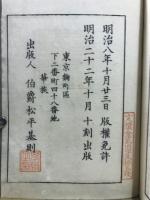 明治八年十月廿三日版權免許
明治二十二年十月十刻出版
東京麹町區
下二番町四十八番地
華族
出版人伯爵松平基則